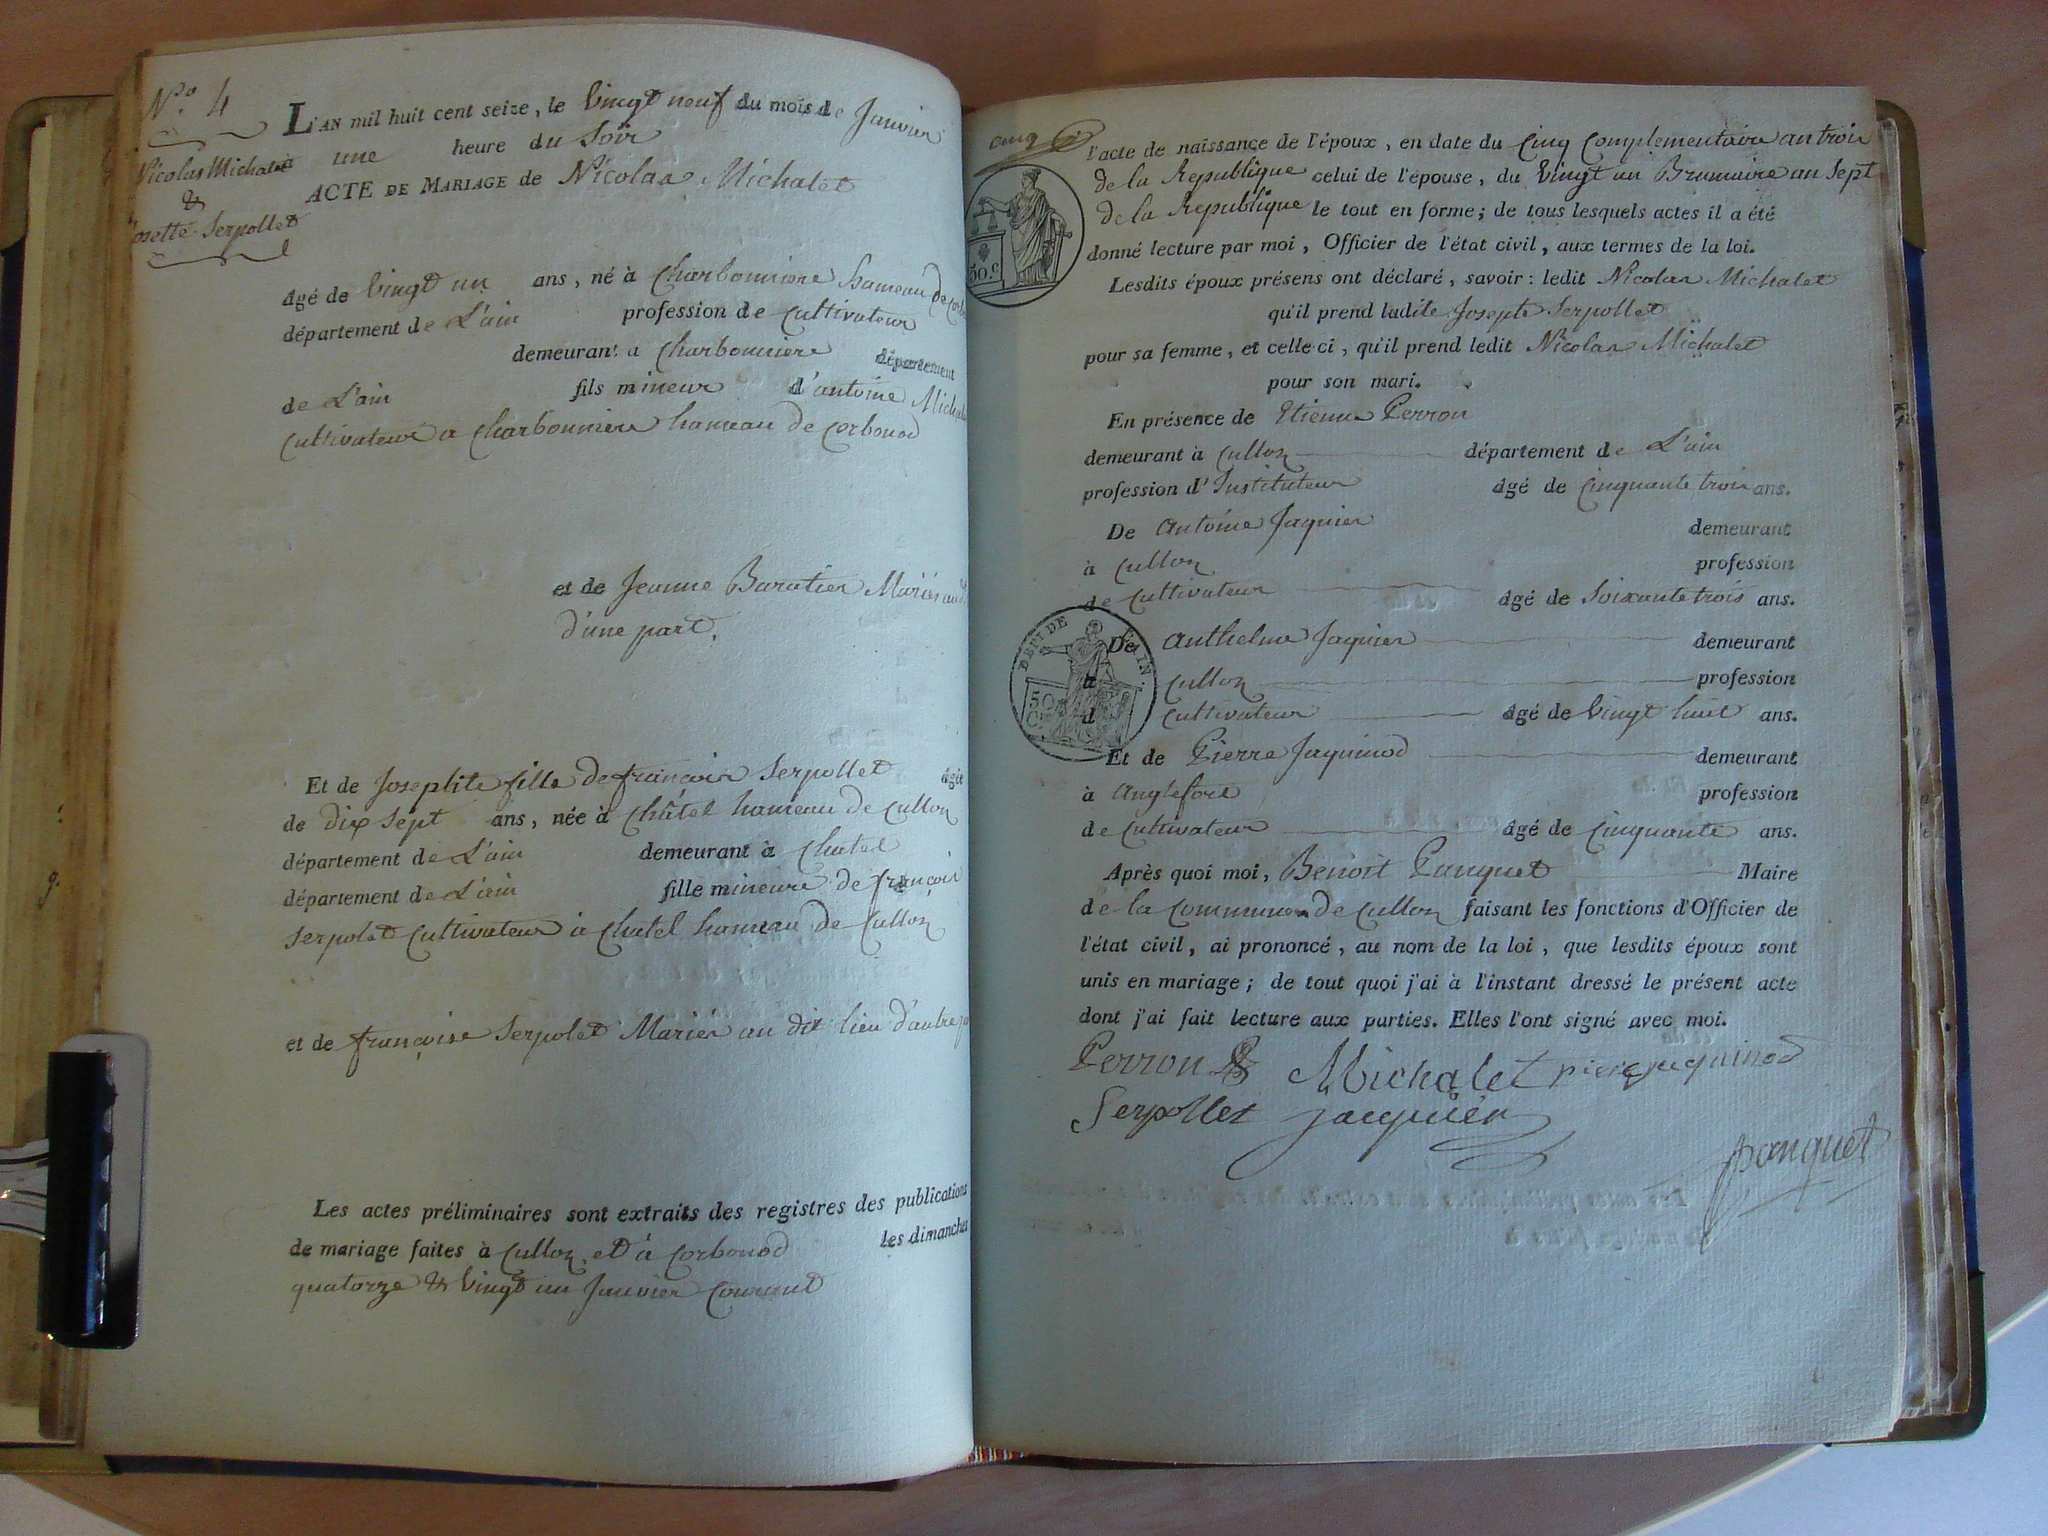 N.º 4
Nicolas Michalet
&
Josette Serpollet
L'AN mil huit cent seize, le Vingt neuf du mois de Janvier
une heure du Soir
ACTE DE MARIAGE de Nicolas Michalet
âgé de Vingt un ans, né à Charbonniere hameau de
département de L'ain profession de Cultivateur
demeurant a Charbonniere département
de L'ain fils mineur d'antoine
Cultivateur a Charbonniere hameau de Corbonod
et de Jeanne Baratier Mariés
d'une part,
Et de Josephte fille de françois Serpollet âgée
de dix Sept ans, née à Châtel hameau de Culloz
département de L'ain demeurant à Chatel
département de L'ain fille mineure de françois
Serpolet Cultivateur à Chatel hameau de Culloz
et de françoise Serpolet Mariés au dit lieu d'autre
Les actes préliminaires sont extraits des registres des publications
de mariage faites à Culloz et à Corbonod les dimanches
quatorze & Vingt un Janvier Courant
cinq
l'acte de naissance de l'époux, en date du Cinq Complementaire an trois
de la Republique celui de l'épouse, du Vingt un Brumaire an Sept
de la Republique le tout en forme; de tous lesquels actes il a été
donné lecture par moi, Officier de l'état civil, aux termes de la loi.
Lesdits époux présens ont déclaré, savoir: ledit Nicolas Michalet
qu'il prend ladite Josephte Serpollet
pour sa femme, et celle ci, qu'il prend ledit Nicolas Michalet
pour son mari.
En présence de Etienne Perron
demeurant à Culloz département de L'ain
profession d'Instituteur âgé de Cinquante trois ans.
De Antoine Jaquier demeurant
à Culloz profession
de Cultivateur âgé de Soixante trois ans.
De Anthelme Jaquier demeurant
à Culloz profession
d Cultivateur âgé de Vingt huit ans.
Et de Pierre Jaquinod demeurant
à Anglefort profession
de Cultivateur âgé de Cinquante ans.
Après quoi moi, Benoit Panquet Maire
de la Commune de Culloz faisant les fonctions d'Officier de
l'état civil, ai prononcé, au nom de la loi, que lesdits époux sont
unis en mariage; de tout quoi j'ai à l'instant dressé le présent acte
dont j'ai fait lecture aux parties. Elles l'ont signé avec moi.
Perron Michalet pierre jaquinod
Serpollet jacquier
panquet
30.c
DEP.T DE L'AIN.
50
C.